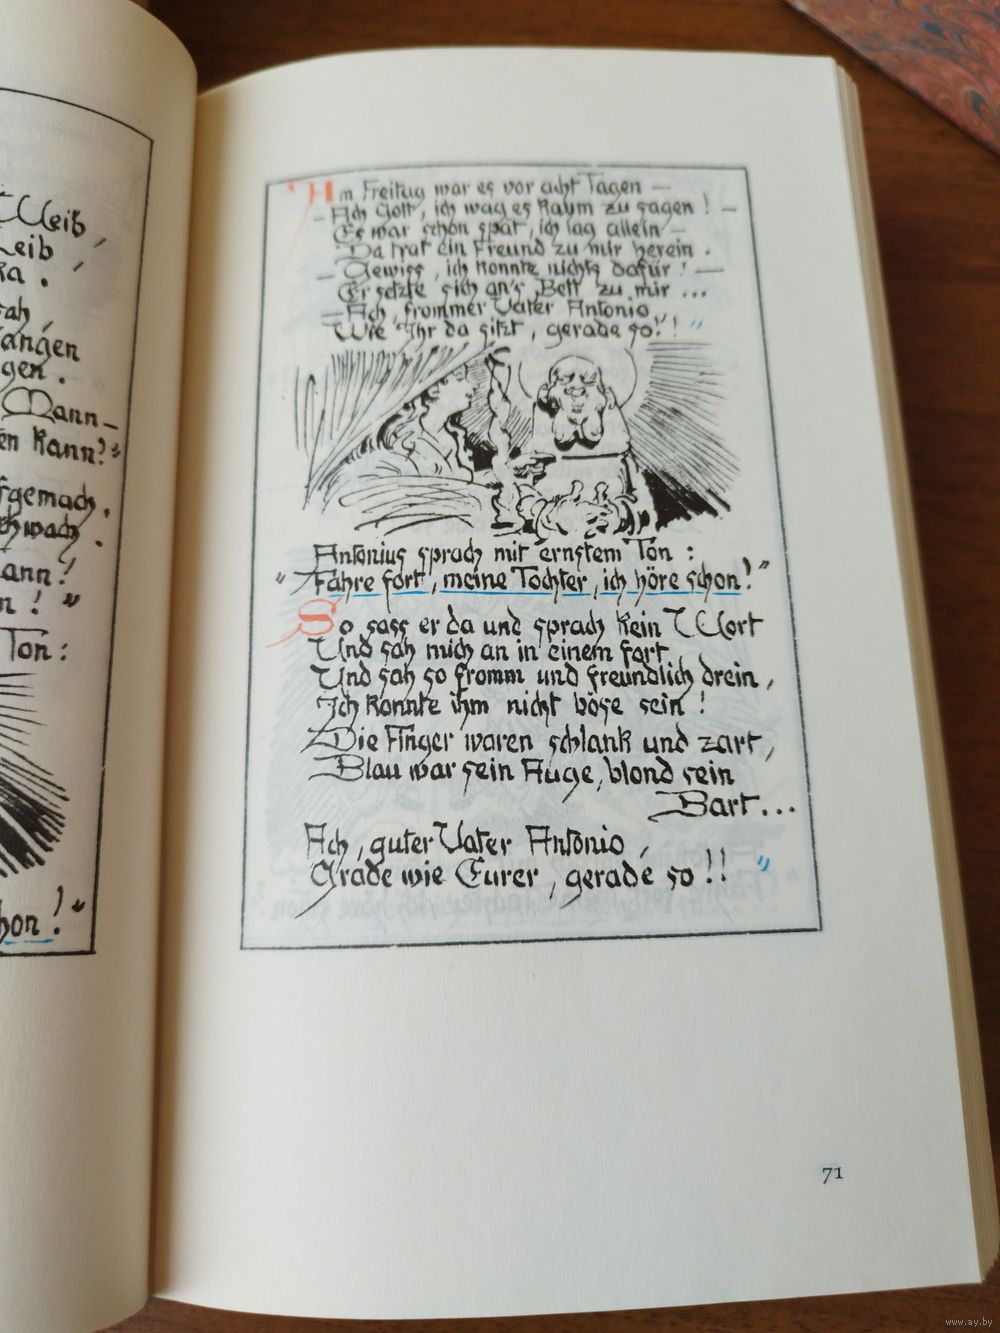 Weib,
Leib
ka.
sah,
fangen
gen.
Mann–
en kann?"
fgemach,
chwach.
ann!
n!"
Ton:
hon!"
Am Freitag war es vor acht Tagen –
– Ach Gott, ich wag es kaum zu sagen! –
Es war schon spät, ich lag allein –
Da trat ein Freund zu mir herein.
– Gewiss, ich konnte nichts dafür! –
Er setzte sich an's Bett zu mir...
– Ach, frommer Vater Antonio,
Wie Ihr da sitzt, gerade so!!"
Antonius sprach mit ernstem Ton:
"Fahre fort, meine Tochter, ich höre schon!"
So sass er da und sprach kein Wort
Und sah mich an in einem fort,
Und sah so fromm und freundlich drein,
Ich konnte ihm nicht böse sein!
Die Finger waren schlank und zart,
Blau war sein Auge, blond sein
Bart...
Ach, guter Vater Antonio,
Grade wie Eurer, gerade so!!"
71
www.ay.by